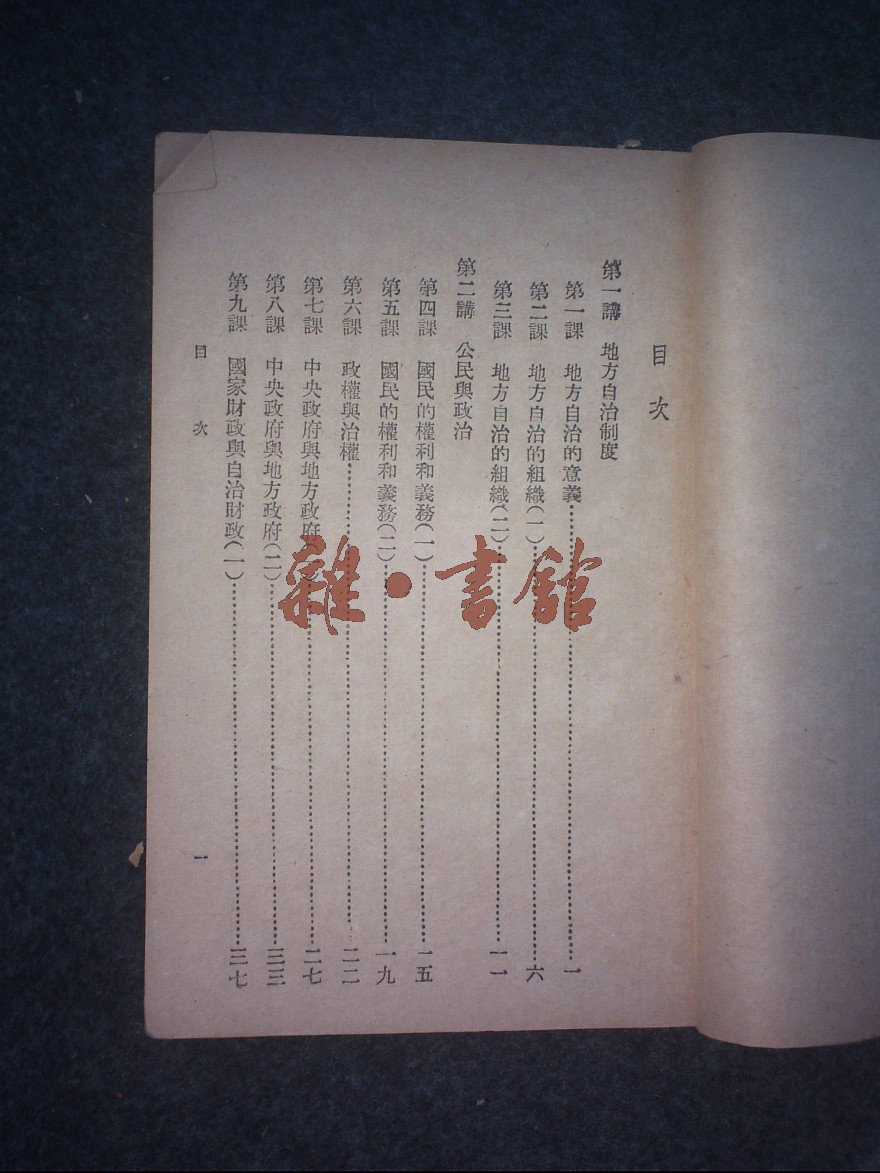 目次
第一講　地方自治制度
第一課　地方自治的意義……一
第二課　地方自治的組織(一)……六
第三課　地方自治的組織(二)……一一
第二講　公民與政治
第四課　國民的權利和義務(一)……一五
第五課　國民的權利和義務(二)……一九
第六課　政權與治權……二二
第七課　中央政府與地方政府……二七
第八課　中央政府與地方政府(二)……三三
第九課　國家財政與自治財政(一)……三七
目次　一
雜·書館